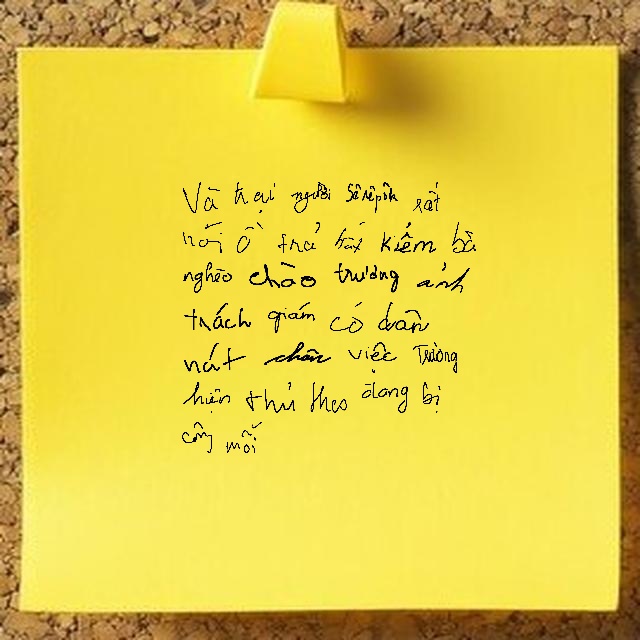 Và trại người Sêrêpôk rất
nói Ồ trả bài kiểm bà
nghèo chào trương ảnh
trách giám có đoàn
nát chân việc Trường
hiện thủ theo đang bị
công mỗi